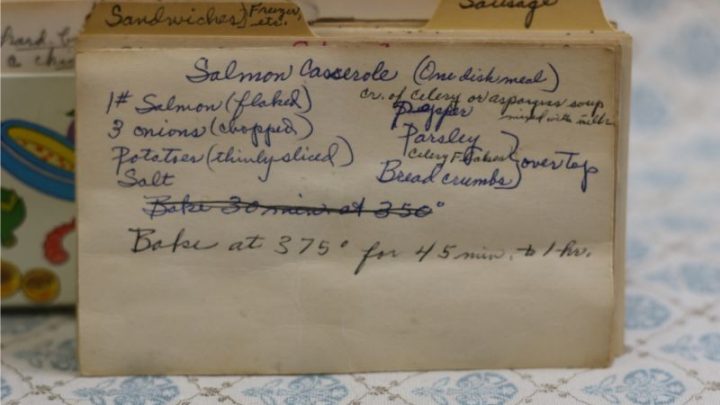 Sandwiches} Freezer, etc.
Sausage
Salmon Casserole (One dish meal)
1# Salmon (flaked)
3 onions (chopped)
Potatoes (thinly sliced)
Salt
cr. of celery or asparagus soup
mixed with milk
Pepper
Parsley
Celery Flakes
Bread crumbs
} over top
Bake 30 min at 350°
Bake at 375° for 45 min. to 1 hr.